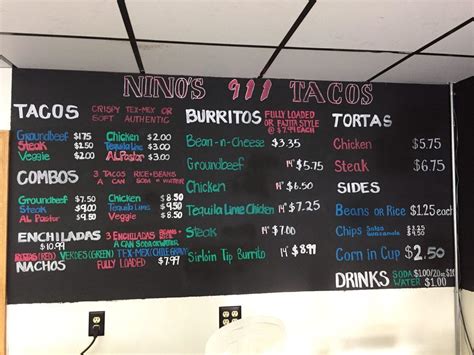 NINO'S 911 TACOS
TACOS CRISPY TEX-MEX OR
SOFT AUTHENTIC
Groundbeef $1.75 Chicken $2.00
Steak $2.50 Tequila Lime
Veggie $2.00 Al Pastor
COMBOS 3 TACOS RICE+BEANS
A CAN SODA OR WATER
Groundbeef $7.50 Chicken $8.50
Steak Tequila Lime
Al Pastor Veggie $8.50
ENCHILADAS 3 ENCHILADAS BEANS
$10.99 A CAN SODA OR WATER
ROJAS(RED) VERDES(GREEN) TEX-MEX
NACHOS FULLY LOADED $7.99
BURRITOS FULLY LOADED
OR FAJITA STYLE
@ $7.99 EACH
Bean-n-Cheese $3.35
Groundbeef 14" $5.75
Chicken 14" $6.50
Tequila Lime Chicken 14" $7.25
Steak 14" $7.99
Sirloin Tip Burrito 14" $8.99
TORTAS
Chicken $5.75
Steak $6.75
SIDES
Beans or Rice $1.25 each
Chips Salsa
Guacamole
Corn in Cup $2.50
DRINKS SODA $1.00/20oz
WATER $1.00